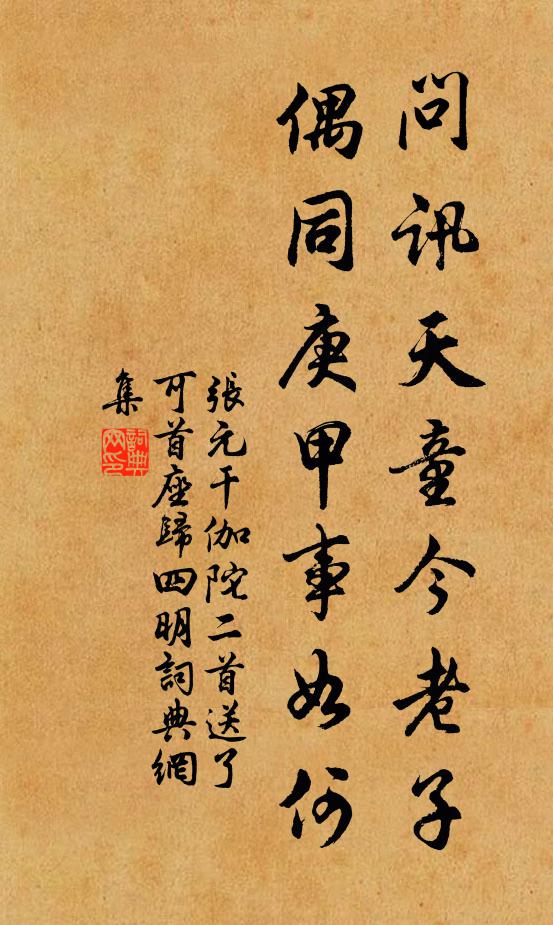 問訊天童今老子
偶同庚甲事如何
張元干伽陀二首送了
可首座歸四明詞典網
集
詞典
网印